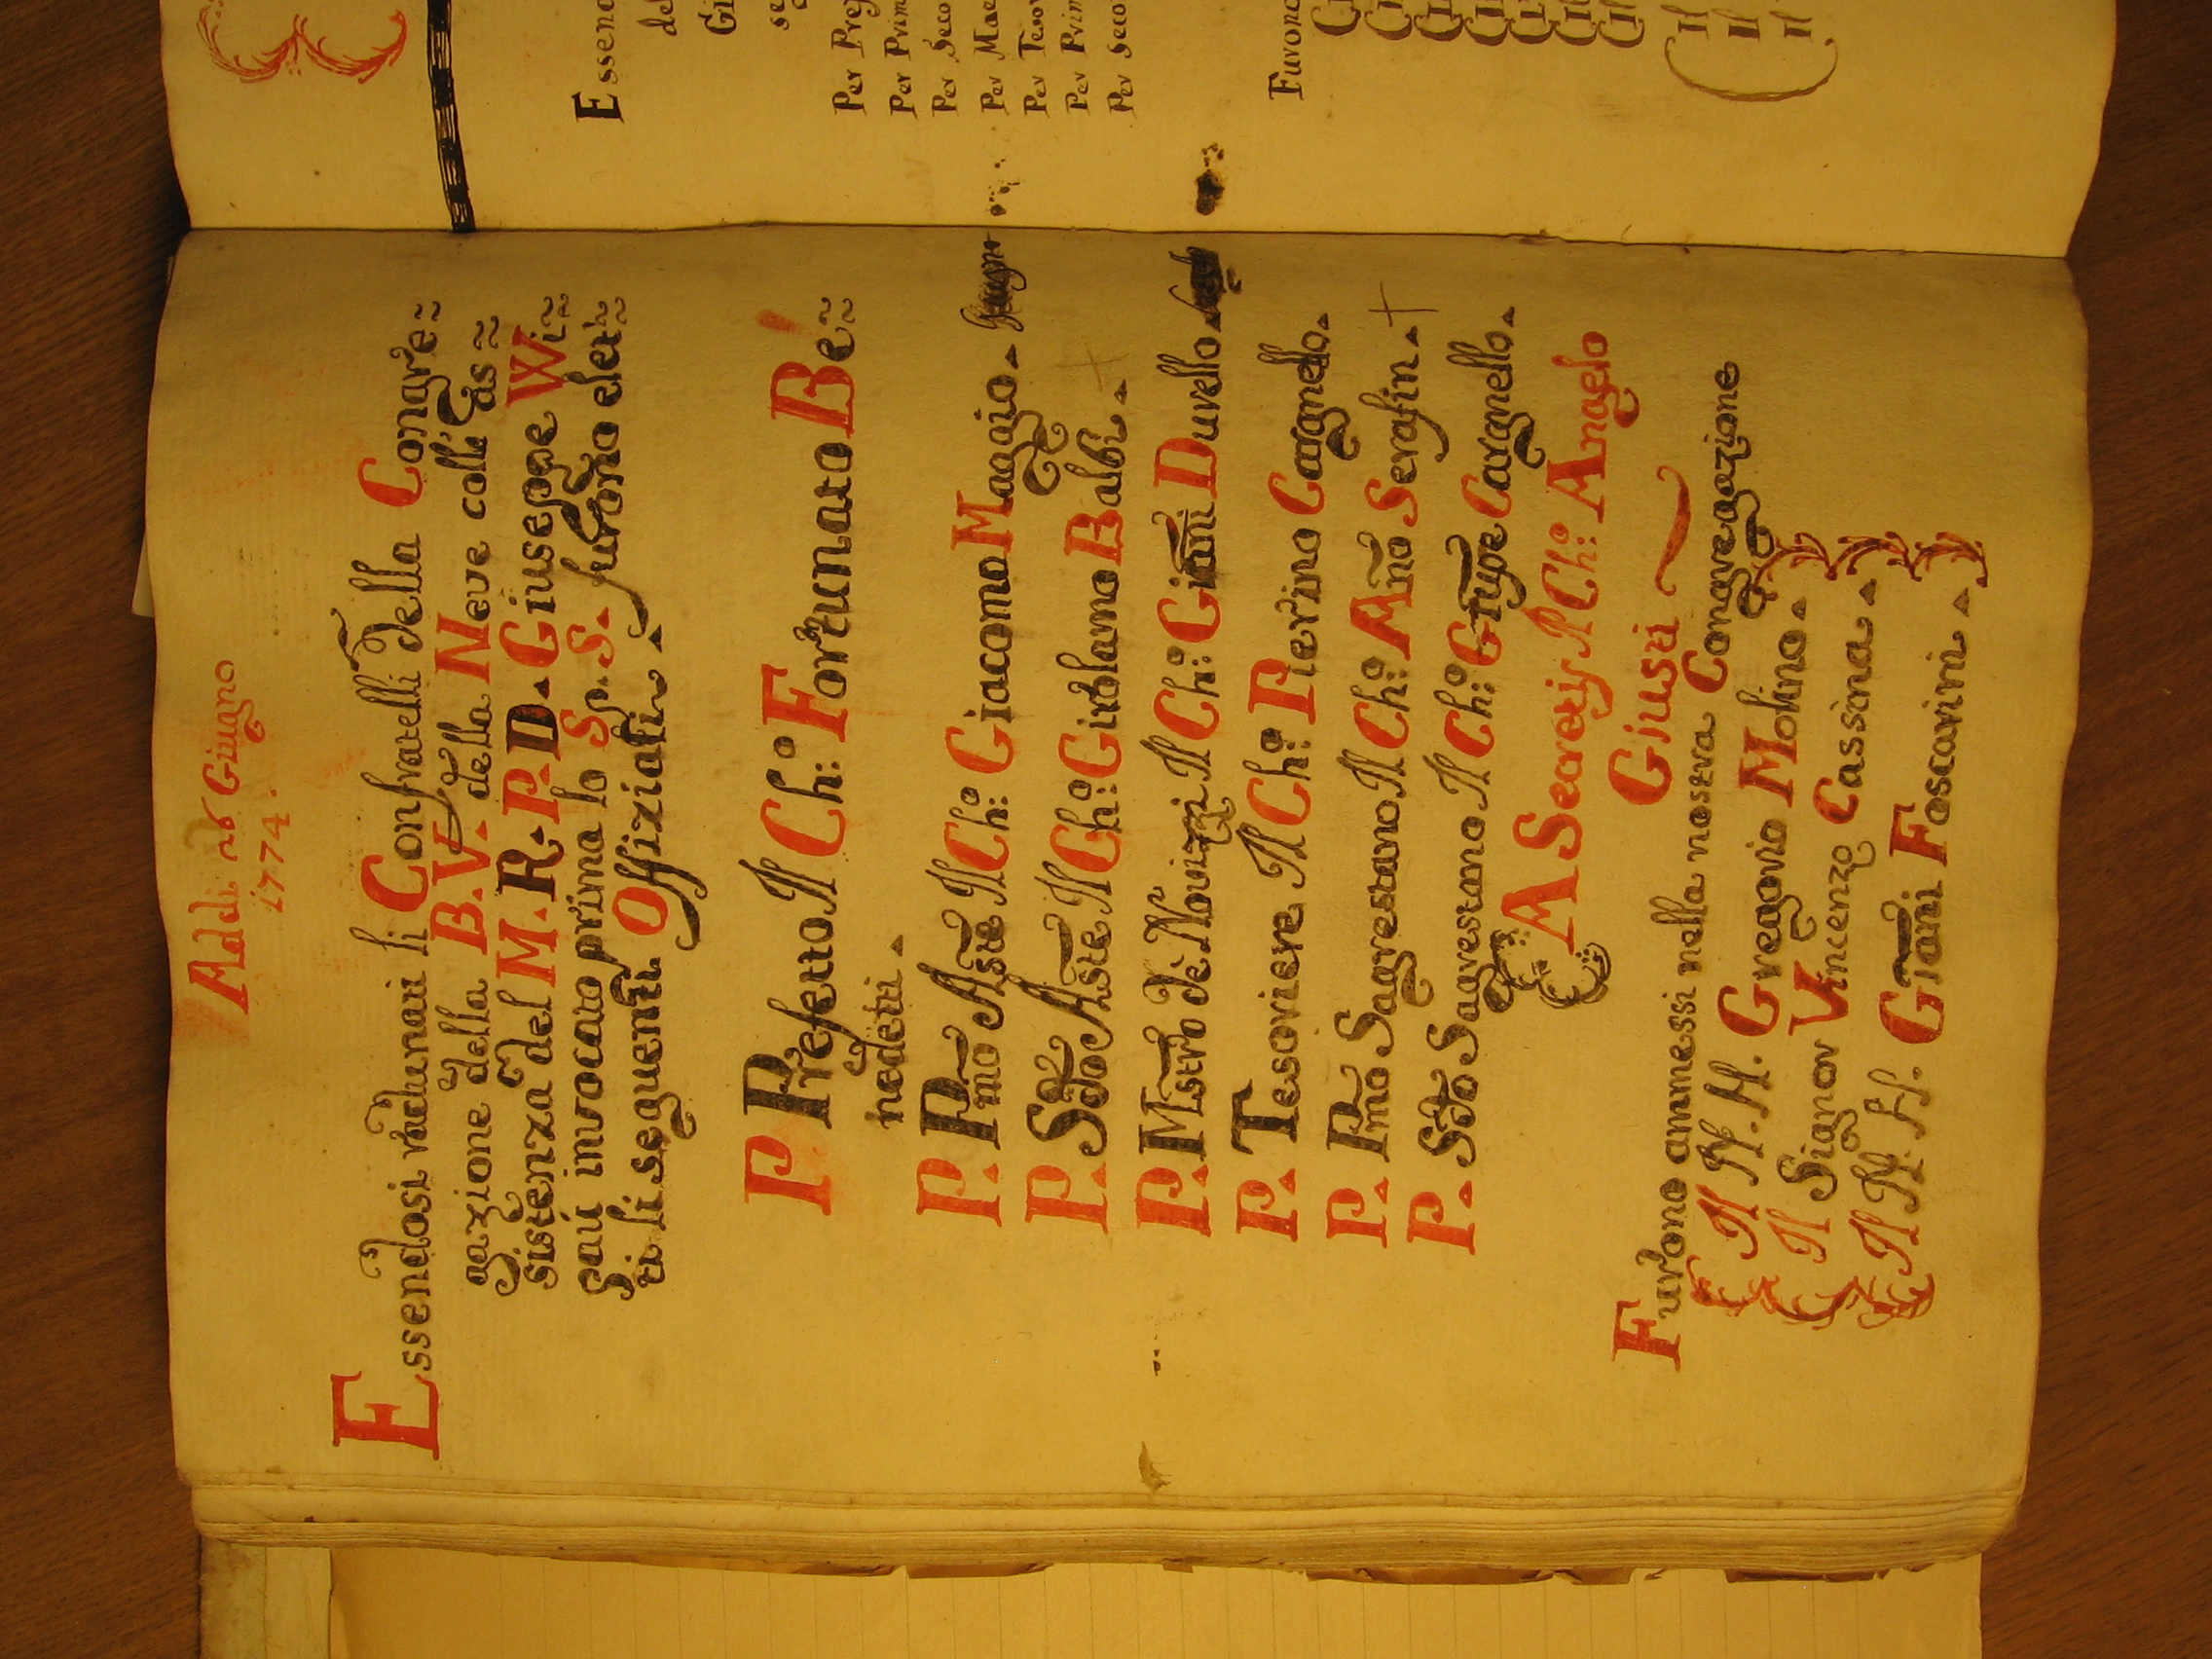 Addi 26 Giugno
1774.
Essendosi raddunati li Confratelli della Congre=
gazione della B. V. della Neve coll' as=
sistenza del M. R. P. D. Giuseppe Wi=
spaú invocato prima lo S. p. S. furono elet=
ti li seguenti Offiziali.
P Prefetto Il Ch:º Fortunato Be=
nedetti.
P. Pmo Aste Il Ch:º Giacomo Maggio.
P. Sdo Aste Il Ch:º Girolamo Balbi.
P. Mstro De Novizzi Il Ch:º Giani Durello.
P. Tesoriere Il Ch:º Pierino Cargnello.
P. Pmo Sagrestano Il Ch:º Año Serafin.
P. Sdo Sagrestano Il Ch:º Giupe Cargnello.
A Secretis Il Ch:º Angelo
Giusti
Furono ammessi nella nostra Congregazione
Il N. H. Gregorio Molino.
Il Signor Vincenzo Cassina.
Il N. H. Giani Foscarini.
Essend
de
Gi
se
Per Pref
Per Prim
Per Seco
Per Mae
Per Tesor
Per Prim
Per Seco
Furono
Il
Il
Il